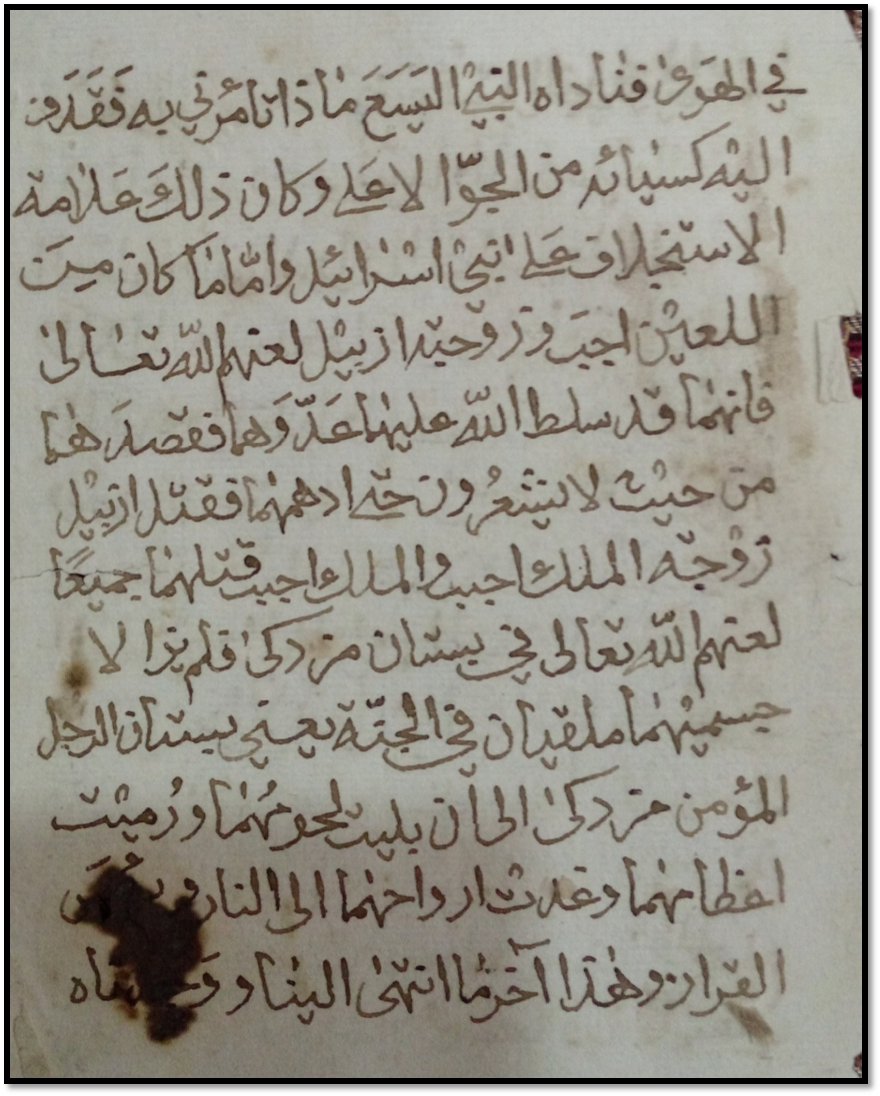 في الهَوىٰ فناداه النبيْ اليَسَعَ ماذا تامُرني به فَقَدَف
اليْه كسيائه من الجوّ الاعَلي وكان ذلكَ عَلامة
الاستخلاف عَلي بَنيْ اسْرائيْل وامّا مَا كان مِن
اللعيْن اجبَ وزوْجته ازبيْل لعنهم اللّه تعالىٰ
فانهما قد سلط اللّه عليهما عَدّوَهما فقصدَ هما
من حيْث لا يشْعُرون حتي ادهمهما فقتل ازبيْل
زوْجة الملك اجبب والملك اجبب قتلهما جميْعًا
لعنهم اللّه تعالى في بستان مزدكىٰ فلم يزالا
جسميْهما ملقيان في الجنّة يعني بستان الرجل
المؤمن مزدكىٰ الى ان بليت لحومُهما ورُميْت
اعظامهما وغدت ارواحهما الى النار
القرار وهٰذا آخر ما انتهىٰ الينا و